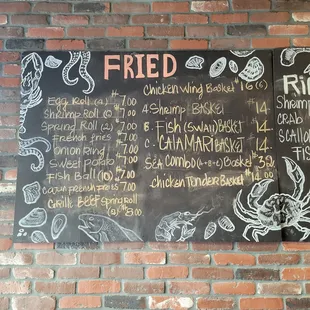 FRIED
Egg Roll (2) $7.00
Shrimp Roll (2) $7.00
Spring Roll (2) $7.00
French fries $7.00
onion Ring $7.00
Sweet potato $7.00
Fish Ball $7.00
Cajun French fries $7.00
Grill Beef Spring Roll
(2) $8.00
Chicken Wing Basket $16 (6)
A. Shrimp BASKET $14
B. Fish (Swai) BASKET $14
C. CALAMARI BASKET $14
SEA Combo (A+B+C) Basket $32
chicken Tender BASKET $14.00
Shrimp
CRAB
SCALLO
FISH